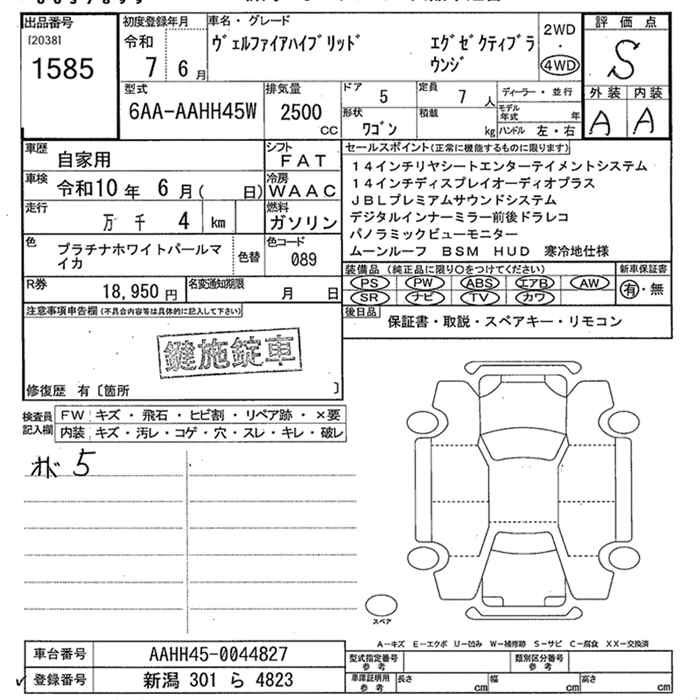 出品番号 初度登録年月 車名・グレード 2WD 評価点
[2038] 令和 ヴェルファイアハイブリッド エグゼクティブラ ・ S
1585 7 6月 ウンジ 4WD
型式 排気量 ドア 5 定員 7人 ディーラー・並行 外装 内装
6AA-AAHH45W 2500 形状 積載 モデル年式 年 A A
CC ワゴン kg ハンドル 左・右
車歴 自家用 シフト FAT セールスポイント(正常に機能するものに限ります)
車検 令和10年 6月( 日) 冷房 WAAC 14インチリヤシートエンターテイメントシステム
14インチディスプレイオーディオプラス
走行 万 千 4 km 燃料 ガソリン JBLプレミアムサウンドシステム
デジタルインナーミラー前後ドラレコ
色 プラチナホワイトパールマ 色替 色コード パノラミックビューモニター
イカ 089 ムーンルーフ BSM HUD 寒冷地仕様
R券 18,950円 名変通知期限 月 日 装備品(純正品に限り○をつけてください) 新車保証書
PS PW ABS エアB AW 有・無
SR ナビ TV カワ
注意事項申告欄(不具合内容等は具体的に記入して下さい) 後日品 保証書・取説・スペアキー・リモコン
鍵施錠車
修復歴 有〔箇所 〕
検査員 FW キズ・飛石・ヒビ割・リペア跡・×要
記入欄 内装 キズ・汚レ・コゲ・穴・スレ・キレ・破レ
スペア
A-キズ E-エクボ U-凹み W-補修跡 S-サビ C-腐食 XX-交換済
車台番号 AAHH45-0044827 型式指定番号 参考 類別区分番号 参考
登録番号 新潟 301 ら 4823 車庫証明用 参考 長さ cm 幅 cm 高さ cm